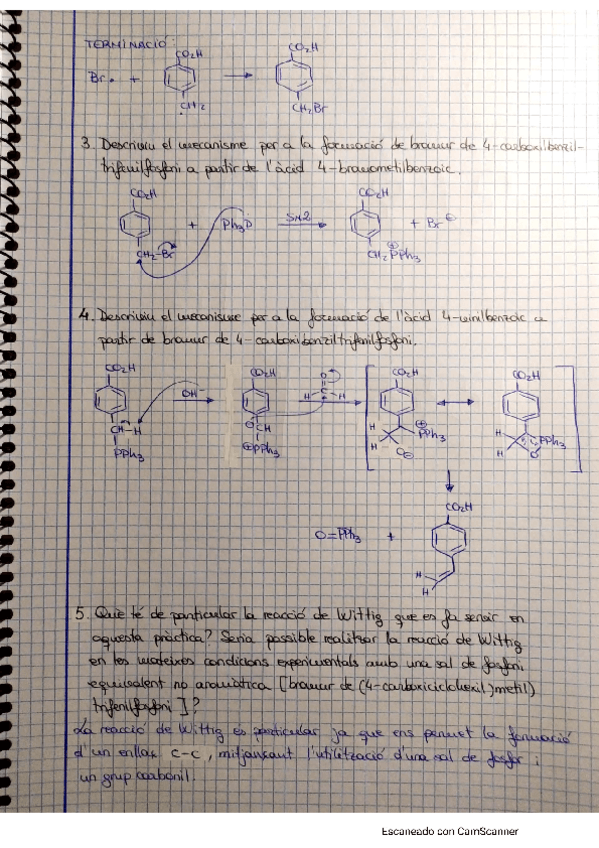 TERMINACIÓ:
CO₂H CO₂H
Br• + →
•CH₂ CH₂Br
3. Descriviu el mecanisme per a la formació de bromur de 4-carboxilbenzil-
trifenilfosfoni a partir de l'àcid 4-bromometilbenzoic.
CO₂H CO₂H
+ Ph₃P SN2 + Br⊖
CH₂-Br CH₂PPh₃ ⊕
4. Descriviu el mecanisme per a la formació de l'àcid 4-vinilbenzoic a
partir de bromur de 4-carboxibenziltrifenilfosfoni.
CO₂H CO₂H O CO₂H CO₂H
OH⁻ H C H
CH-H ⊖CH H ⊕PPh₃ H PPh₃
PPh₃ ⊕PPh₃ H O⊖ H O
CO₂H
O=PPh₃ +
H
H
5. Què té de particular la reacció de Wittig que es fa servir en
aquesta pràctica? Seria possible realitzar la reacció de Wittig
en les mateixes condicions experimentals amb una sal de fosfoni
equivalent no aromàtica [bromur de (4-carboxiciclohexil)metil)
trifenilfosfoni]?
La reacció de Wittig és particular ja que ens permet la formació
d'un enllaç C-C, mitjansant l'utilització d'una sal de fosfor i
un grup carbonil.
Escaneado con CamScanner